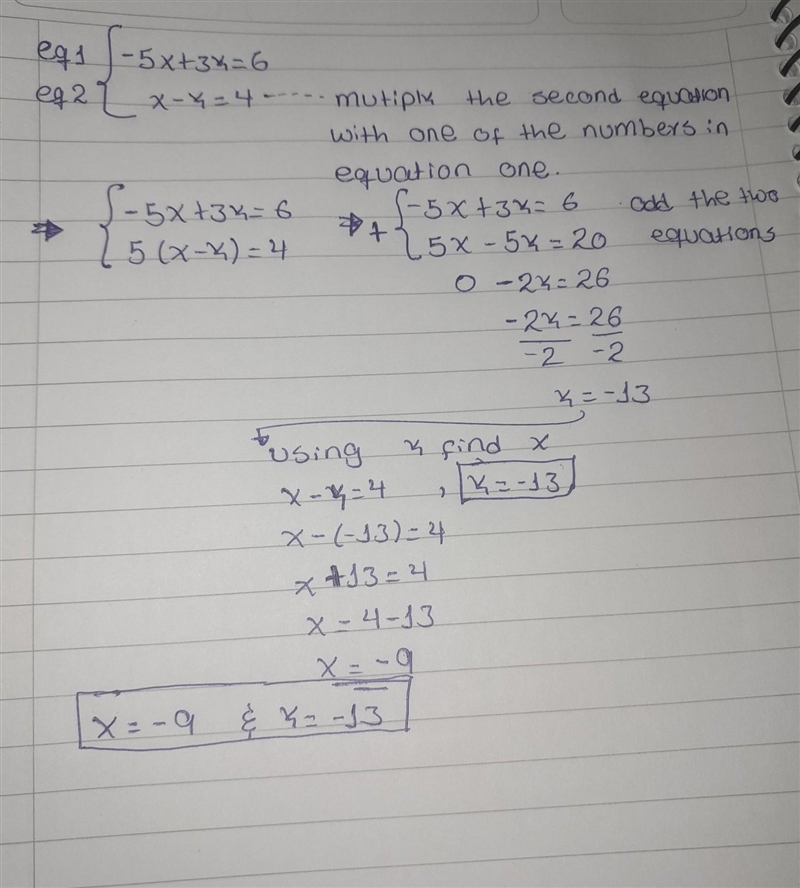 eq1 { -5x+3y=6
eq2 { x-y=4 ...... mutiply the second equation
with one of the numbers in
equation one.
⇒ { -5x+3y=6 ⇒ + { -5x+3y=6 add the two
{ 5(x-y)=4 { 5x-5y=20 equations
0 -2y=26
-2y=26
-2 -2
y=-13
using y find x
x-y=4 , y=-13
x-(-13)=4
x+13=4
x=4-13
x=-9
x=-9 & y=-13